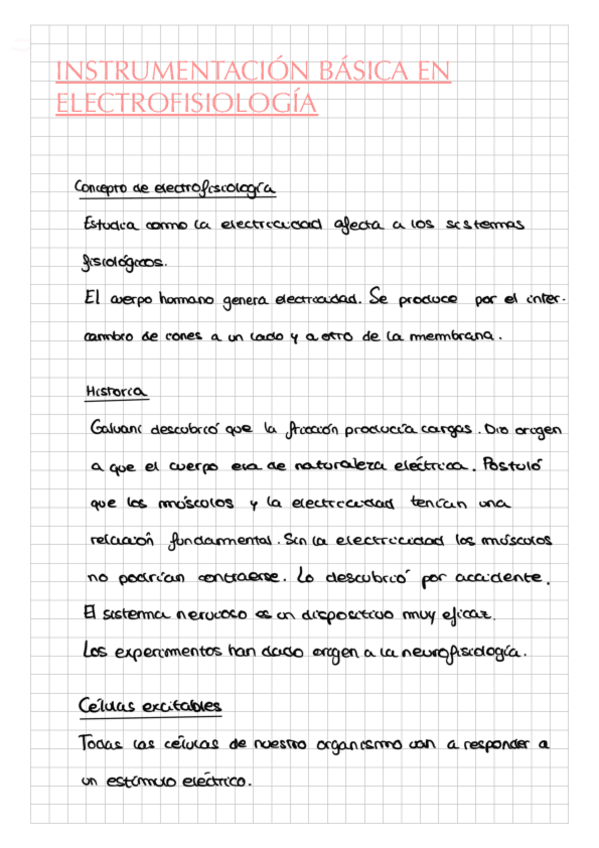 INSTRUMENTACIÓN BÁSICA EN
ELECTROFISIOLOGÍA
Concepto de electrofisiología
Estudia como la electricidad afecta a los sistemas
fisiológicos.
El cuerpo humano genera electricidad. Se produce por el inter-
cambio de iones a un lado y a otro de la membrana.
Historia
Galvani descubrió que la fricción producía cargas. Dio origen
a que el cuerpo era de naturaleza eléctrica. Postuló
que los músculos y la electricidad tenían una
relación fundamental. Sin la electricidad los músculos
no podrían contraerse. Lo descubrió por accidente.
El sistema nervioso es un dispositivo muy eficaz.
Los experimentos han dado origen a la neurofisiología.
Células excitables
Todas las células de nuestro organismo van a responder a
un estímulo eléctrico.